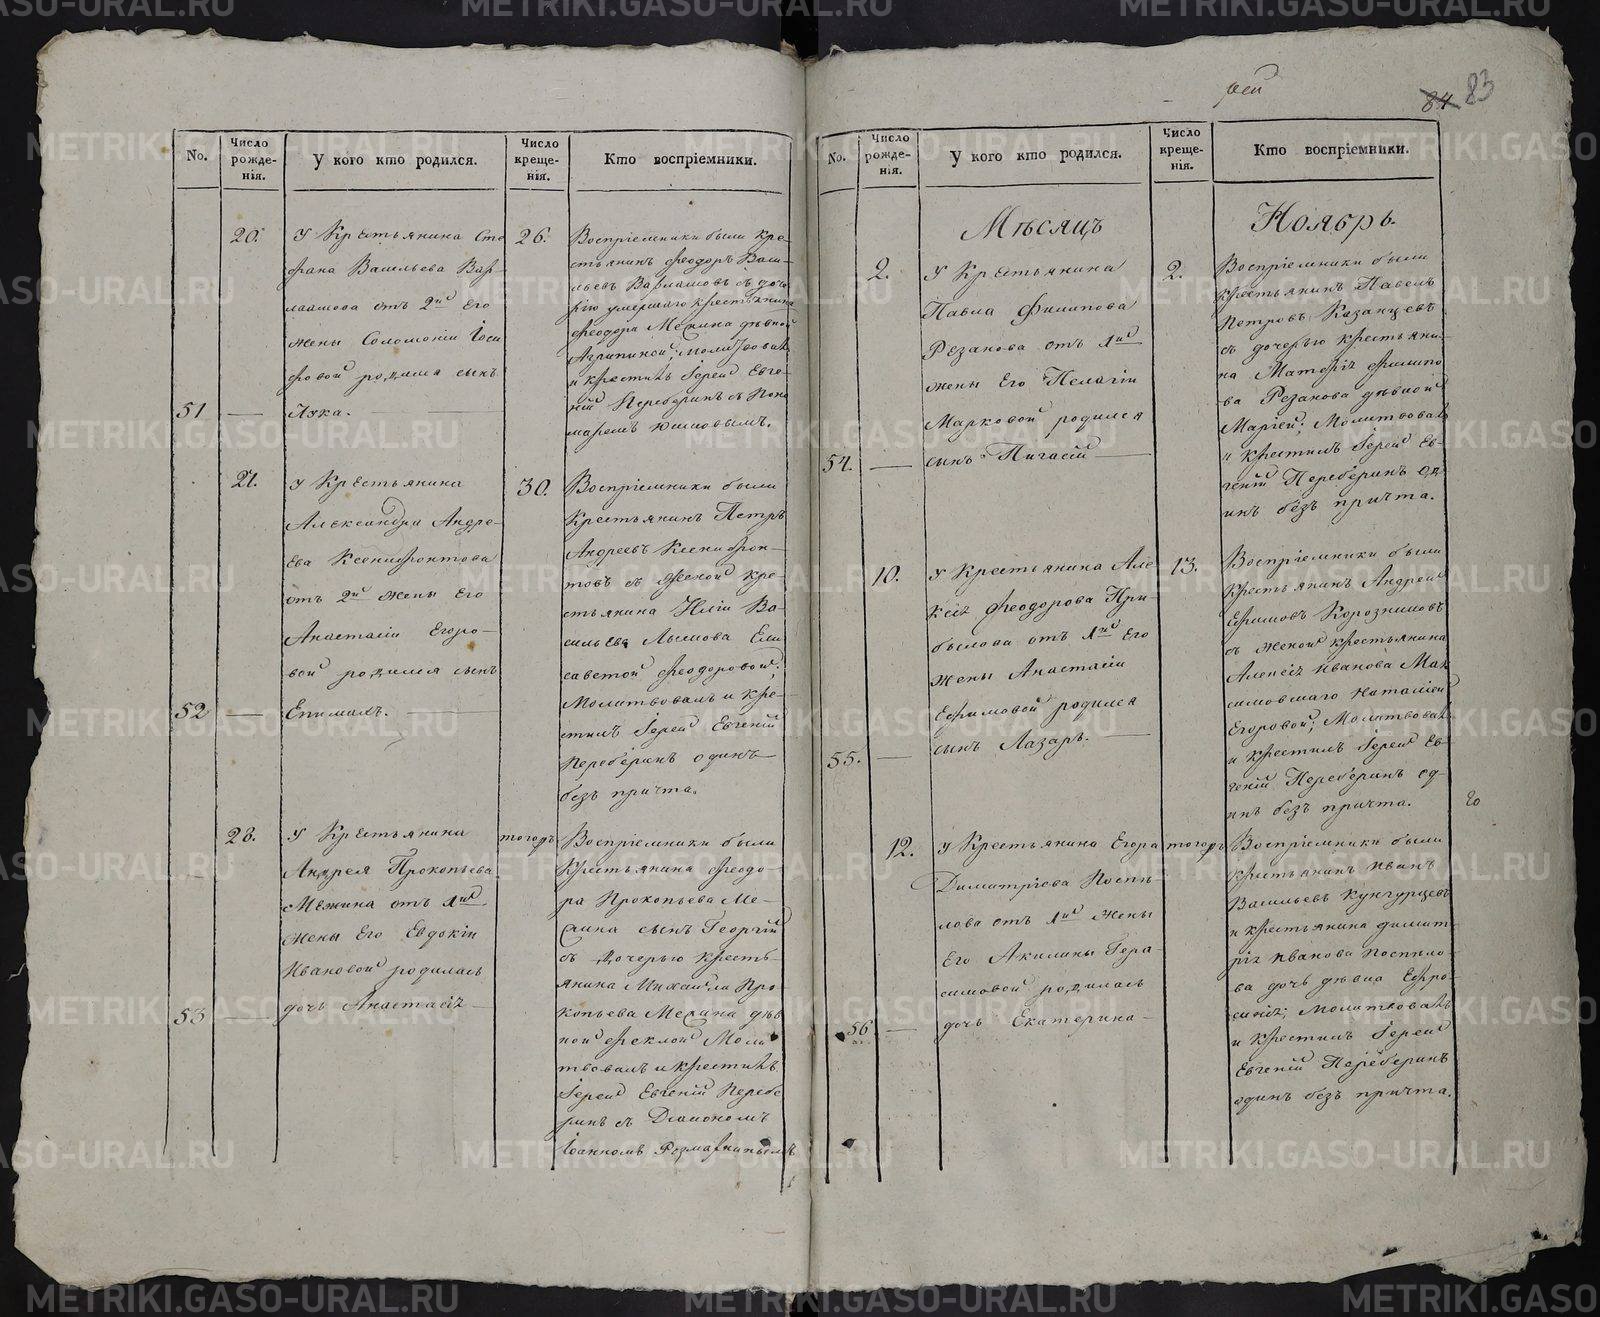 реи
84 83
No.
Число рожде-нія.
У кого кто родился.
Число креще-нія.
Кто воспріемники.
20.
У Крестьянина Сте
фана Васильева Вар-
лаамова отъ 2й его
жены Соломоніи Іоси
фовой родился сынъ
51 — Лука.
26.
Воспріемники были кре-
стьянинъ Феодоръ Васи-
льевъ Варлаамовъ съ доче
рію умершаго крестьянина
Феодора Мехина дѣвкой
Агрипиной; молитвовалъ
и крестилъ Іерей Евге-
ній Переберинъ съ Поно
маремъ Юшковымъ.
21.
У Крестьянина
Александра Андре-
ева Ксенофонтова
отъ 2й жены его
Анастасіи Егоро-
вой родился сынъ
52 — Епимахъ.
30.
Воспріемники были
Крестьянинъ Петръ
Андреевъ Ксенофон-
товъ съ женой кре-
стьянина Иліи Ва-
сильева Лысцова Ели
саветой Феодоровой;
Молитвовалъ и кре-
стилъ Іерей Евгеній
Переберинъ одинъ
безъ причта.
28.
У Крестьянина
Андрея Прокопьева
Мехина отъ 1й
жены его Евдокіи
Ивановой родилась
53 — дочь Анастасія
тогожъ
Воспріемники были
Крестьянина Феодо-
ра Прокопьева Ме-
хина сынъ Георгій
съ дочерью кресть-
янина Михаила Про-
копьева Мехина дѣв
кой Феклой Моли
твовалъ и крестилъ
Іерей Евгеній Перебе
ринъ съ Діакономъ
Іоанномъ
No.
Число рожде-нія.
У кого кто родился.
Число креще-нія.
Кто воспріемники.
Мѣсяцъ Ноябрь.
2.
У Крестьянина
Павла Филипова
Резанова отъ 1й
жены его Пелагіи
Марковой родился
54. — сынъ Пигасій
2.
Воспріемники были
крестьянинъ Павелъ
Петровъ Казанцевъ
съ дочерью крестьяни-
на Матфія Филипо
ва Резанова дѣвкой
Маріей; Молитвовалъ
и крестилъ Іерей Ев-
геній Переберинъ од
инъ безъ причта.
10.
У Крестьянина Але
ксія Феодорова При-
былова отъ 1й его
жены Анастасіи
Ефимовой родился
55. — сынъ Лазарь.
13.
Воспріемники были
Крестьянинъ Андрей
Ефимовъ
съ женой крестьянина
Алексія Иванова Мак
симовскаго Наталіей
Егоровой; Молитвовалъ
и крестилъ Іерей Ев-
геній Переберинъ од-
инъ безъ причта.
12.
У Крестьянина Егора
Димитріева Поспѣ-
лова отъ 1й жены
его Акилины Гера-
симовой родилась
56 — дочь Екатерина
тогожъ
Воспріемники были
крестьянинъ Иванъ
Васильевъ Кунгурцевъ
и крестьянина Димит-
рія Иванова Поспѣло-
ва дочь дѣвка Ефро-
синія; молитвовалъ
и крестилъ Іерей
Евгеній Переберинъ
одинъ безъ причта.
METRIKI.GASO-URAL.RU